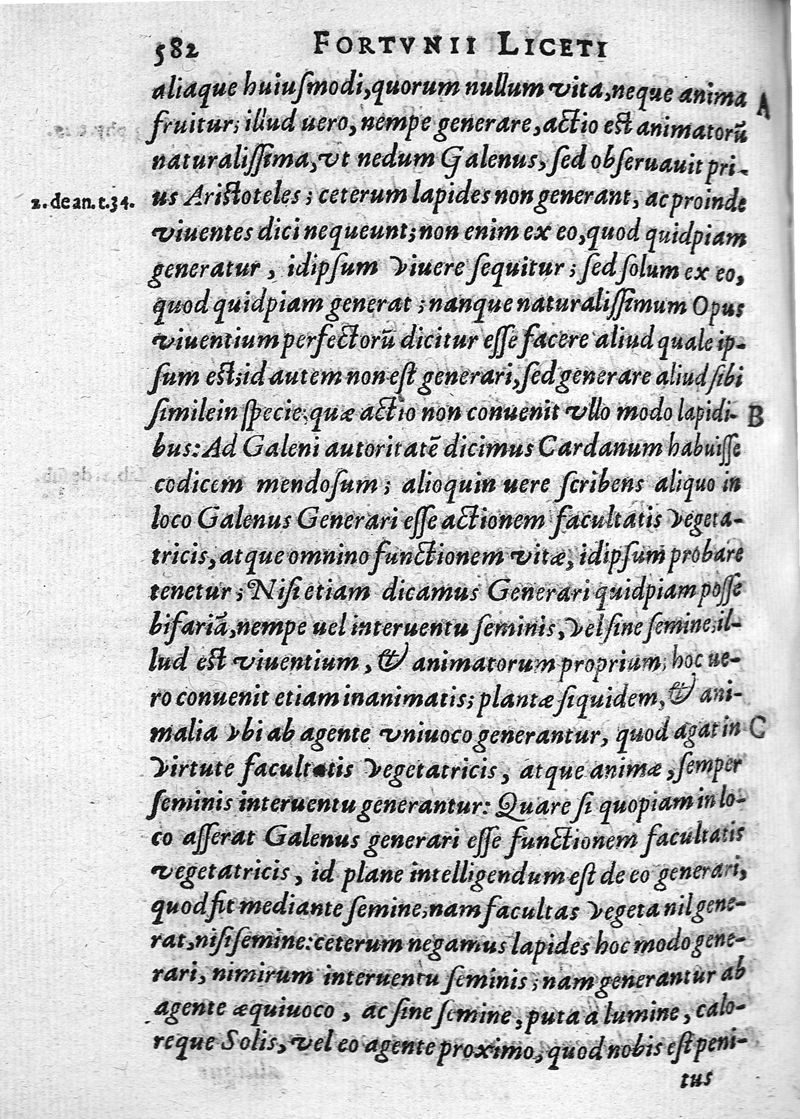 582 FORTVNII LICETI
aliaque huiusmodi, quorum nullum vita, neque anima A
fruitur; illud uero, nempe generare, actio est animatorũ
naturalissima, vt nedum Galenus, sed obseruauit pri-
2. de an. t. 34. us Aristoteles; ceterum lapides non generant, ac proinde
viuentes dici nequeunt; non enim ex eo, quod quidpiam
generatur, idipsum viuere sequitur; sed solum ex eo,
quod quidpiam generat; nanque naturalissimum Opus
viuentium perfectorũ dicitur esse facere aliud quale ip-
sum est; id autem non est generari, sed generare aliud sibi
simile in specie; quæ actio non conuenit vllo modo lapidi- B
bus: Ad Galeni autoritatẽ dicimus Cardanum habuisse
codicem mendosum; alioquin uere scribens aliquo in
loco Galenus Generari esse actionem facultatis vegeta-
tricis, atque omnino functionem vitæ, idipsum probare
tenetur; Nisi etiam dicamus Generari quidpiam posse
bifariã, nempe uel interuentu seminis, vel sine semine; il-
lud est viuentium, & animatorum proprium; hoc ue-
ro conuenit etiam inanimatis; plantæ siquidem, & ani-
malia vbi ab agente vniuoco generantur, quod agat in C
virtute facultatis vegetatricis, atque animæ, semper
seminis interuentu generantur: Quare si quopiam in lo-
co asserat Galenus generari esse functionem facultatis
vegetatricis, id plane intelligendum est de eo generari,
quod fit mediante semine; nam facultas vegeta nil gene-
rat, nisi semine: ceterum negamus lapides hoc modo gene-
rari, nimirum interuentu seminis; nam generantur ab
agente æquiuoco, ac sine semine, puta a lumine, calo-
reque Solis, vel eo agente proximo, quod nobis est peni-
tus